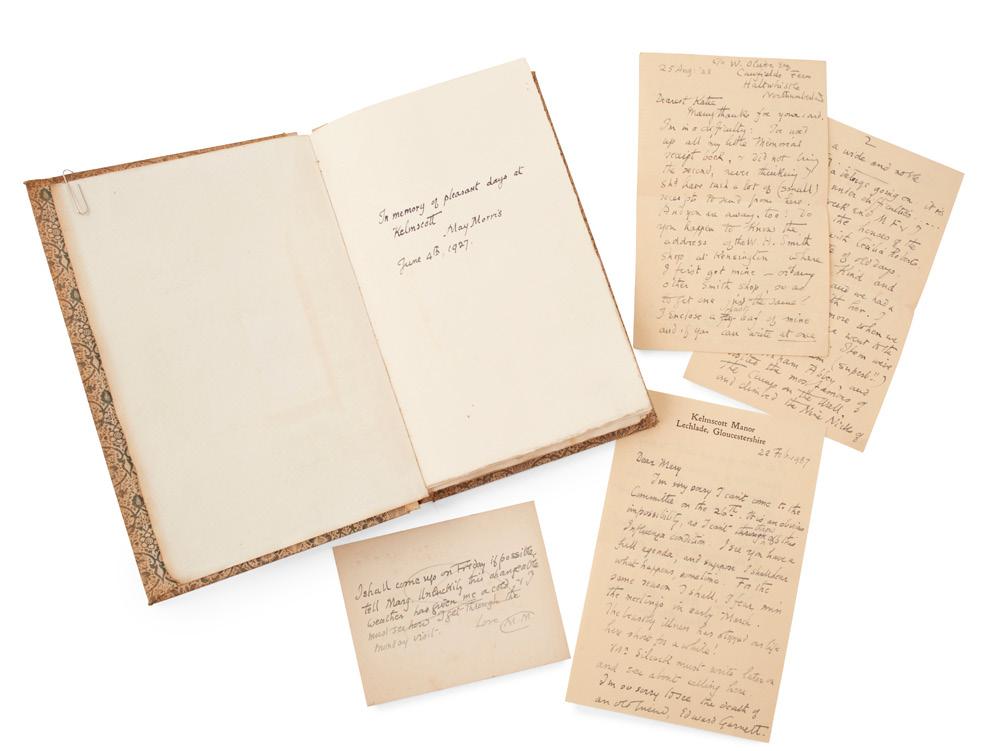 In memory of pleasant days at
Kelmscott
May Morris
June 4th, 1927.
25 Aug: '28
c/o W. Oliver Esq
Cawfields Farm
Haltwhistle
Northumberland
Dearest Katie
Many thanks for your card.
I'm in a difficulty: I've used
up all my little Memorial
receipt book, & did not bring
the second, never thinking I
shd have such a lot of (small)
receipts to send from here.
And you are away, too! Do
you happen to know the
address of the W. H. Smith
shop at Kensington where
I first got mine — or any
other Smith shop, so as
to get one just the same!
I enclose a leaf of mine
and if you can write at once
2
a wide and noble
beings going on. It is
under difficulties
week end M F
the houses of the
with
of old days.
Kind and
and we had a
with her. I
more when we
we went to the
Stem were
(superb!!)
Abbey, and
the most famous of
The Camps on the Wall
and climbed the Nine Nicks of
Kelmscott Manor
Lechlade, Gloucestershire
22 Feb. 1937
Dear Mary
I'm very sorry I can't come to the
Committee on the 26th. It is an obvious
impossibility, as I can't throw off this
Influenza condition. I see you have a
full agenda, and suppose I shall hear
what happens, sometime. For the
same reason I shall, I fear miss
the meetings in early March.
The beastly illness has stopped our life
here for a while!
Mrs must write later on
and see about calling here.
I'm so sorry to see the death of
an old friend, Edward Garnett.
I shall come up on Friday if possible,
tell Marg. Unluckily this changeable
weather has given me a cold, & I
must see how I get through the
Monday visit.
Love M.M